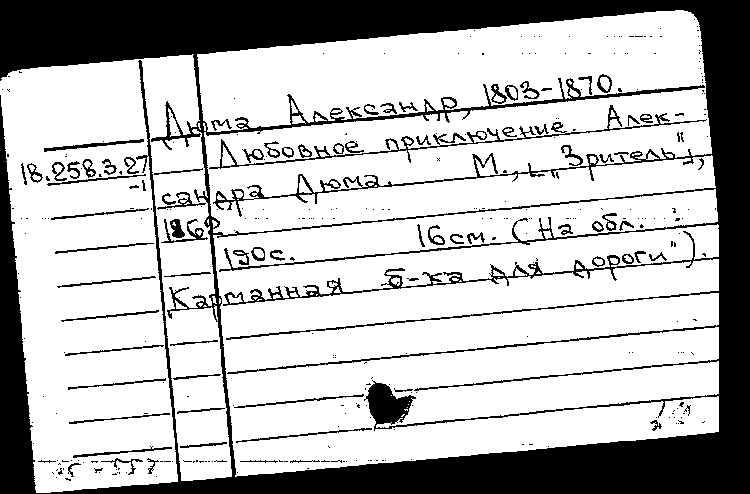 Дюма, Александр, 1803-1870.
Любовное приключение. Алек-
18.258.3.27
-1
сандра Дюма. М., [„Зритель"],
1862.
190с. 16см. (На обл.:
„Карманная б-ка для дороги").